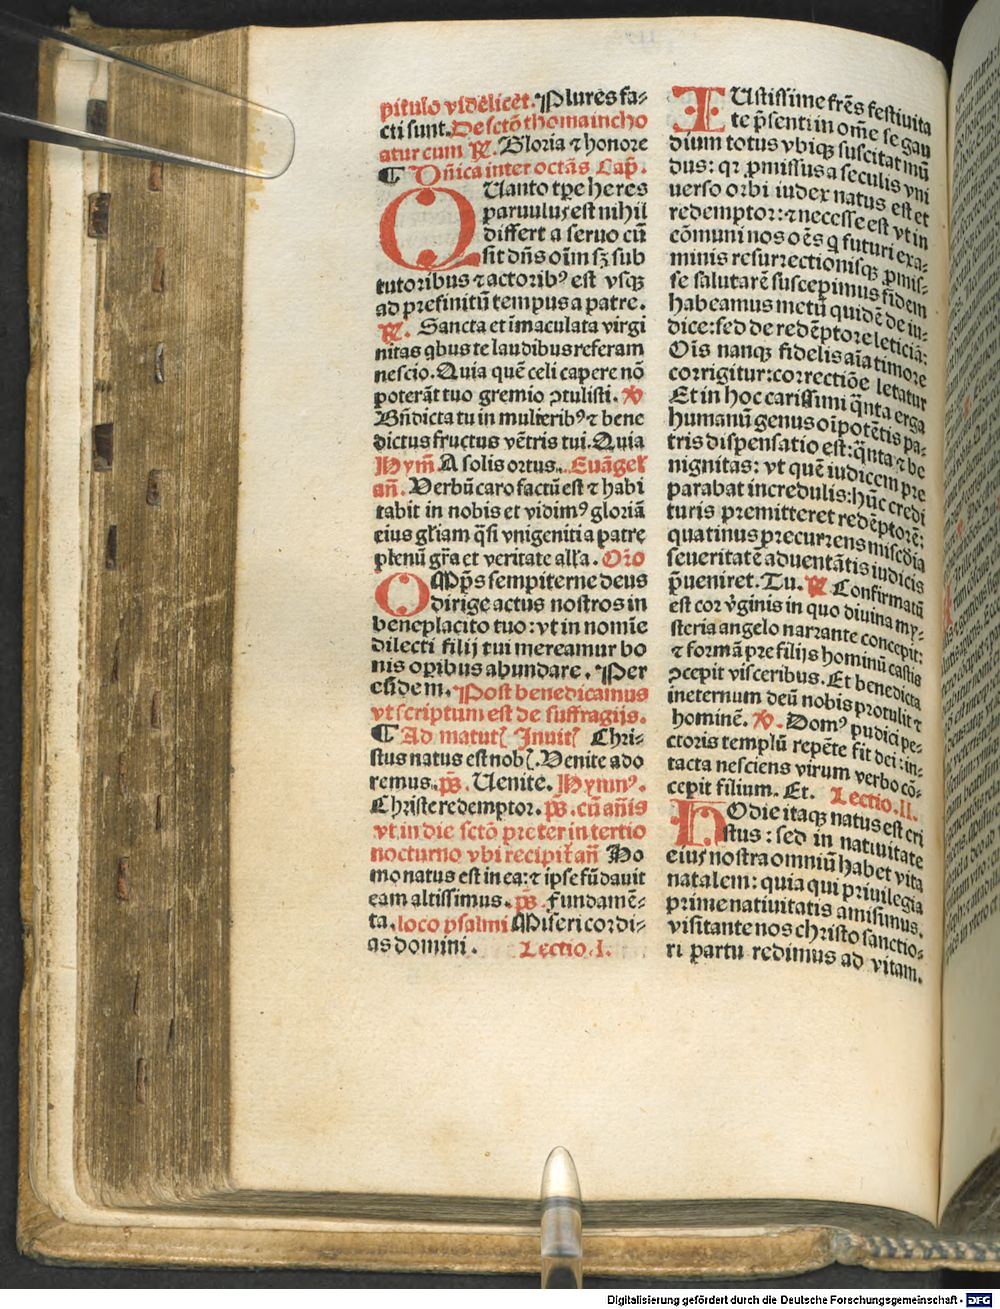 pitulo videlicet. Plures fa-
cti sunt. De sctō thoma incho
atur cum R. Gloria ⁊ honore
¶ Dn̄ica inter octās Cap̄.
QUanto tpe heres
paruulus est nihil
differt a seruo cū
sit dn̄s oīm sꝫ sub
tutoribus ⁊ actorib⁹ est vsqꝫ
ad prefinitū tempus a patre.
R. Sancta et īmaculata virgi
nitas qbus te laudibus referam
nescio. Quia quē celi capere nō
poterāt tuo gremio ↄtulisti. V
Bn̄dicta tu in mulierib⁹ ⁊ bene
dictus fructus vētris tui. Quia
Hym̄ A solis ortus. Euāgel̄
an̄. Verbū caro factū est ⁊ habi
tabit in nobis et vidim⁹ gloriā
eius gl̄iam q̄si vnigeniti a patre
plenū gr̄a et veritate all̄a. Or̄o
OMp̄s sempiterne deus
dirige actus nostros in
beneplacito tuo: vt in nomīe
dilecti filij tui mereamur bo
nis oꝑibus abundare. Per
eūdem. Post benedicamus
vt scriptum est de suffragijs.
¶ Ad matut̄ Inuit̄ Chri-
stus natus est nob̄. Venite ado
remus. ps̄. Uenite. Hymn⁹.
Christe redemptor. ps̄. cū an̄is
vt in die sctō preter in tertio
nocturno vbi recipit̄ an̄ Ho
mo natus est in ea: ⁊ ipse fūdauit
eam altissimus. ps̄. Fundamē-
ta. loco psalmi Misericordi-
as domini. Lectio. I.
IUstissime fr̄es festiuita
te p̄senti in om̄e se gau
dium totus vbiqꝫ suscitat mū
dus: qꝛ ꝓmissus a seculis vni
uerso orbi iudex natus est et
redemptor: ⁊ necesse est vt in
cōmuni nos oēs q futuri exa-
minis resurrectionisqꝫ ꝓmis-
se salutarē suscepimus fidem
habeamus metū quidē de iu-
dice: sed de redēptore leticiā:
Oīs nanqꝫ fidelis aīa timore
corrigitur: correctiōe letatur
Et in hoc carissimi q̄nta erga
humanū genus oīpotētis pa-
tris dispensatio est: q̄nta ⁊ be
nignitas: vt quē iudicem pre
parabat incredulis: hūc credi
turis premitteret redēptorē:
quatinus precurrens mīsc̄dia
seueritatē aduentātis iudicis
p̄ueniret. Tu. R Confirmatū
est cor v̄ginis in quo diuina my-
steria angelo narrante concepit:
⁊ formā pre filijs hominū castis
ↄcepit visceribus. Et benedicta
ineternum deū nobis protulit ⁊
hominē. V. Dom⁹ pudici pe-
ctoris templū repēte fit dei: in-
tacta nesciens virum verbo cō-
cepit filium. Et. Lectio. II.
HOdie itaqꝫ natus est cri
stus: sed in natiuitate
eius nostra omniū habet vita
natalem: quia qui priuilegia
prime natiuitatis amisimus.
visitante nos christo sanctio-
ri partu redimus ad vitam.
Digitalisierung gefördert durch die Deutsche Forschungsgemeinschaft - DFG